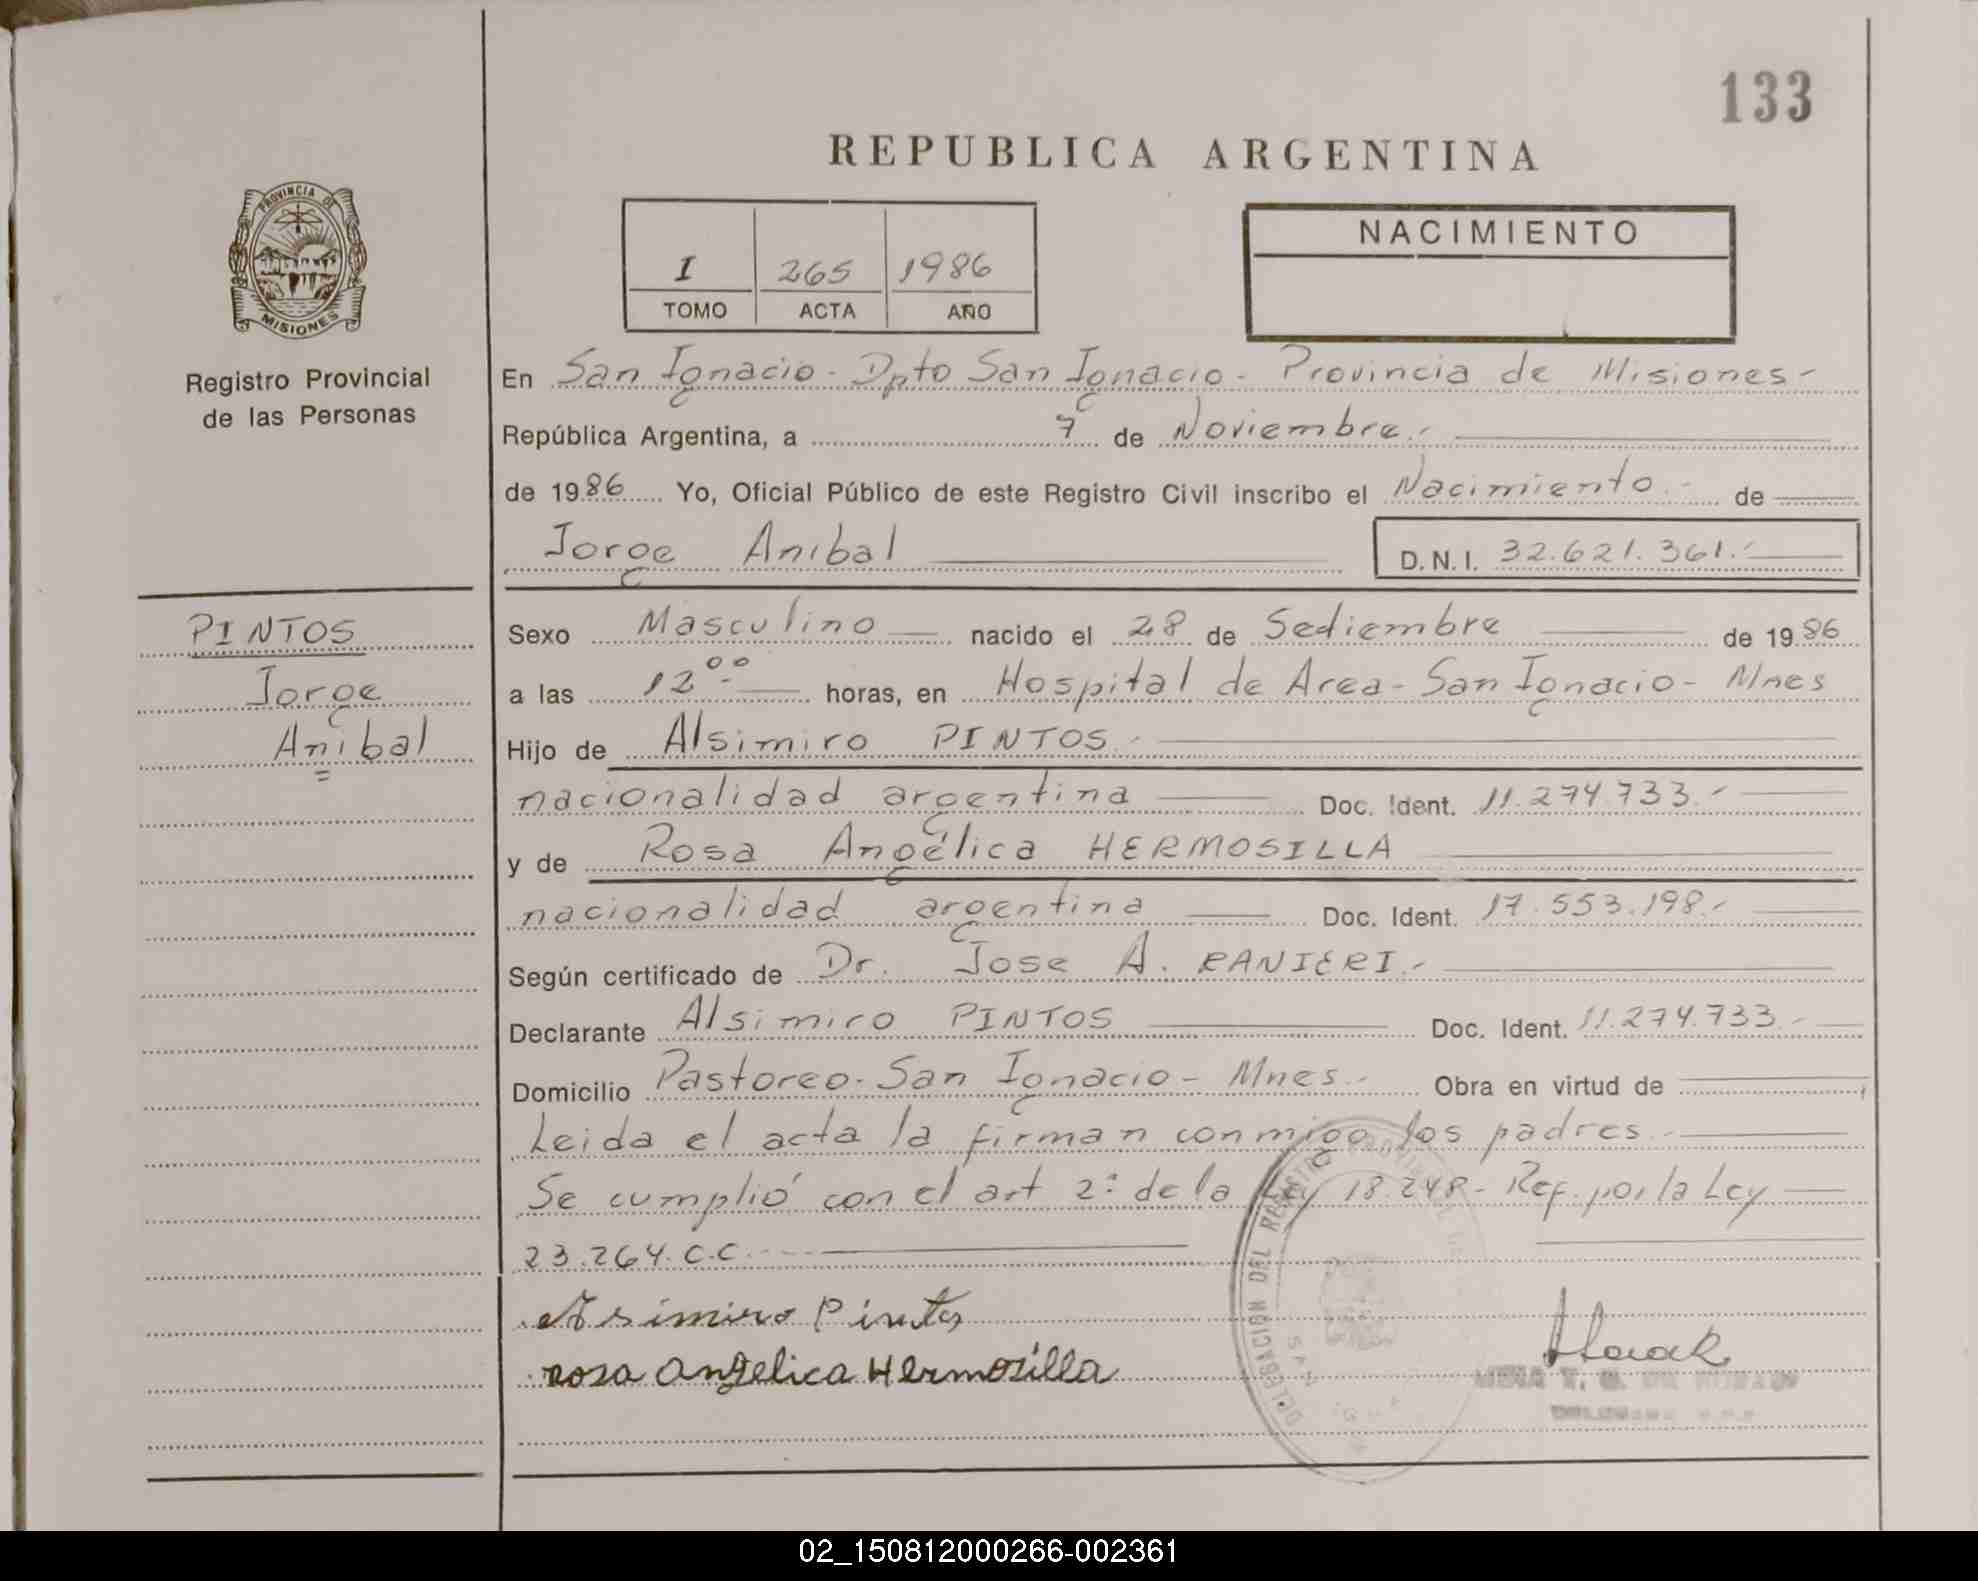 133
REPUBLICA ARGENTINA
PROVINCIA DE
MISIONES
Registro Provincial
de las Personas
I 265 1986
TOMO ACTA AÑO
NACIMIENTO
En San Ignacio - Dpto San Ignacio - Provincia de Misiones -
República Argentina, a 7 de Noviembre.-
de 1986 Yo, Oficial Público de este Registro Civil inscribo el Nacimiento.- de
Jorge Anibal
D.N.I. 32.621.361.-
PINTOS
Jorge
Anibal
Sexo Masculino nacido el 28 de Setiembre de 1986
a las 12 00 horas, en Hospital de Area - San Ignacio - Mnes
Hijo de Alsimiro PINTOS.-
nacionalidad argentina Doc. Ident. 11.274.733.-
y de Rosa Angélica HERMOSILLA
nacionalidad argentina Doc. Ident. 17.553.198.-
Según certificado de Dr. Jose A. RANIERI.-
Declarante Alsimiro PINTOS Doc. Ident. 11.274.733.-
Domicilio Pastoreo - San Ignacio - Mnes.- Obra en virtud de
Leida el acta la firman conmigo los padres.-
Se cumplió con el art 2º de la Ley 18.248 - Ref. por la Ley
23.264.C.C.-
Alsimiro Pintos
rosa Angelica Hermosilla
DELEGACION DEL REGISTRO PROVINCIAL DE
SAN
02_150812000266-002361